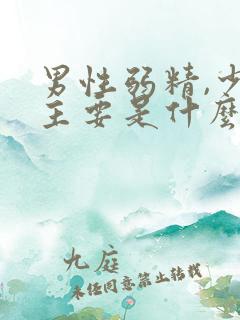 男性弱精,少
主要是什麼
九庭
未经同意禁止转载